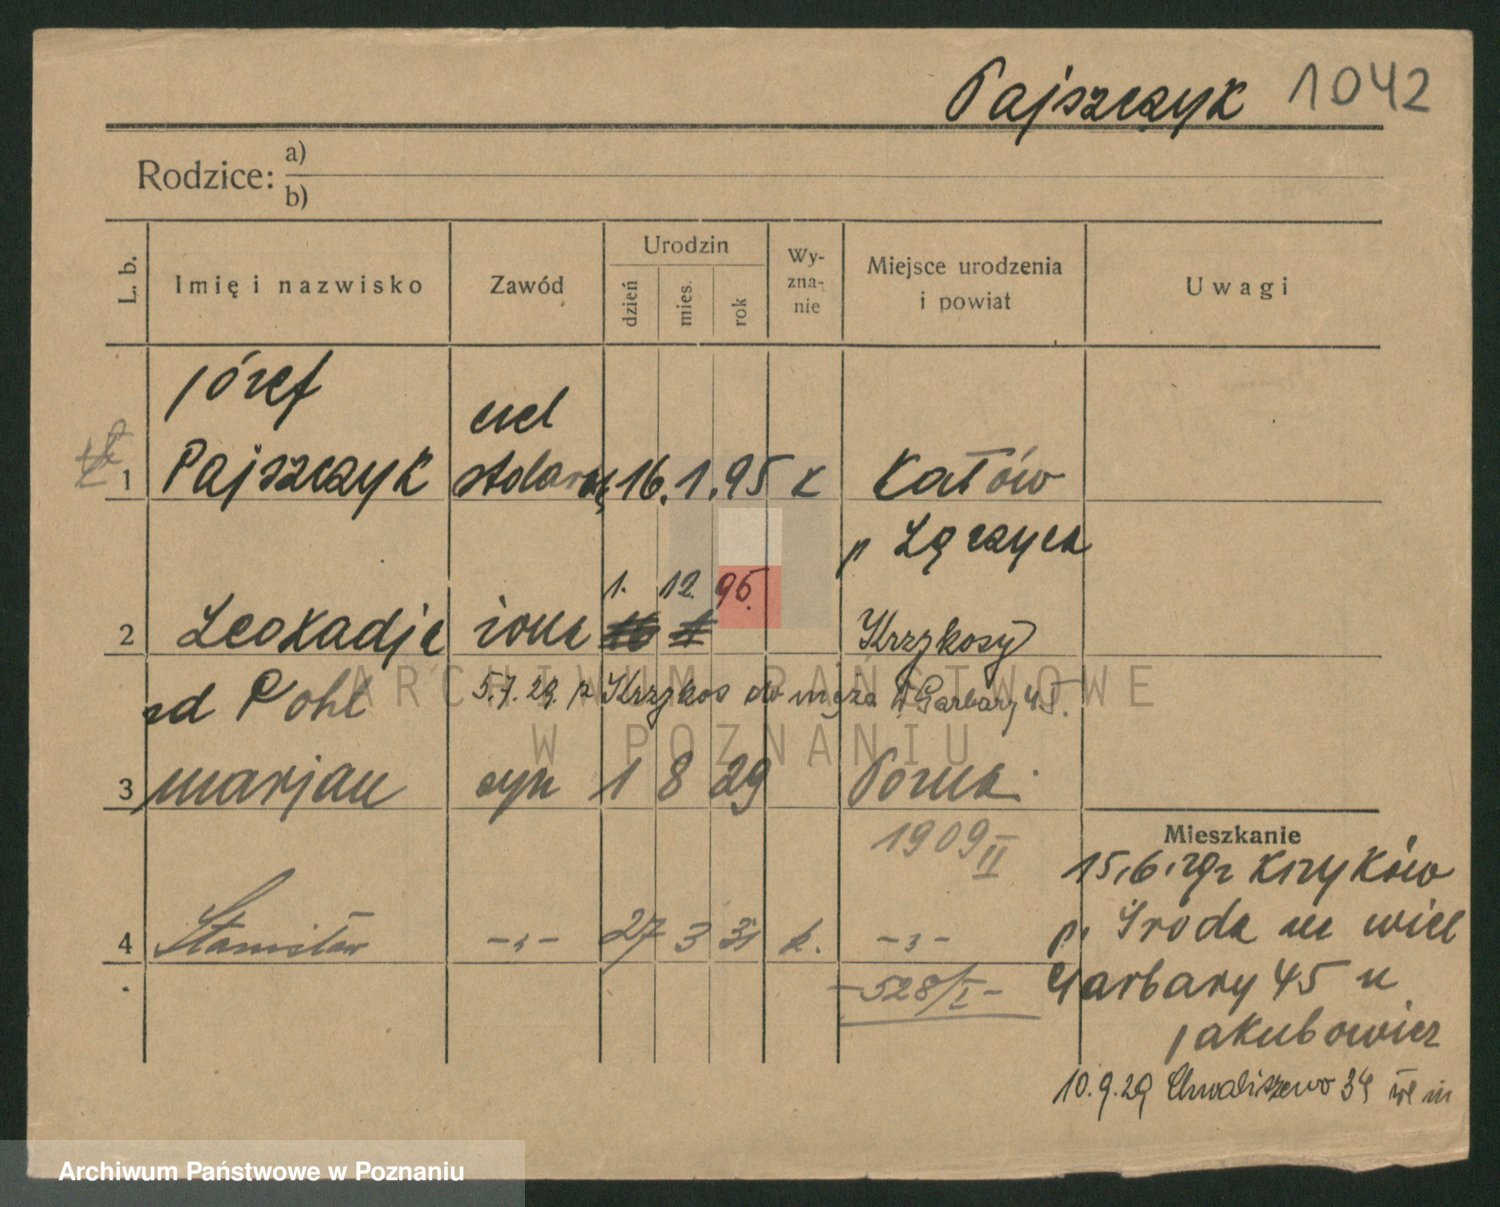 Pajszczyk 1042
Rodzice: a)
b)
L. b. Imię i nazwisko Zawód Urodzin dzień mies. rok Wy-zna-nie Miejsce urodzenia i powiat Uwagi
Józef
czel
1 Pajszczyk stolarsk 16. 1. 95 k Katów
p Łęczyca
1. 12. 96.
2 Leokadja żona 16 1 Krzykosy
zd Pohl 5.7.29. z Krzykos do męża Garbary 45.
3 marjan syn 1 8 29 Pozna.
1909 II
Mieszkanie
15.6.29 z Kijyków
p. Środa m wiel
4 Stanisław -„- 27 3 31 k. -„-
-528/I-
Garbary 45 u
Jakubowicz
10.9.29 Chwaliszewo 34 wł m
ARCHIWUM PAŃSTWOWE
W POZNANIU
Archiwum Państwowe w Poznaniu